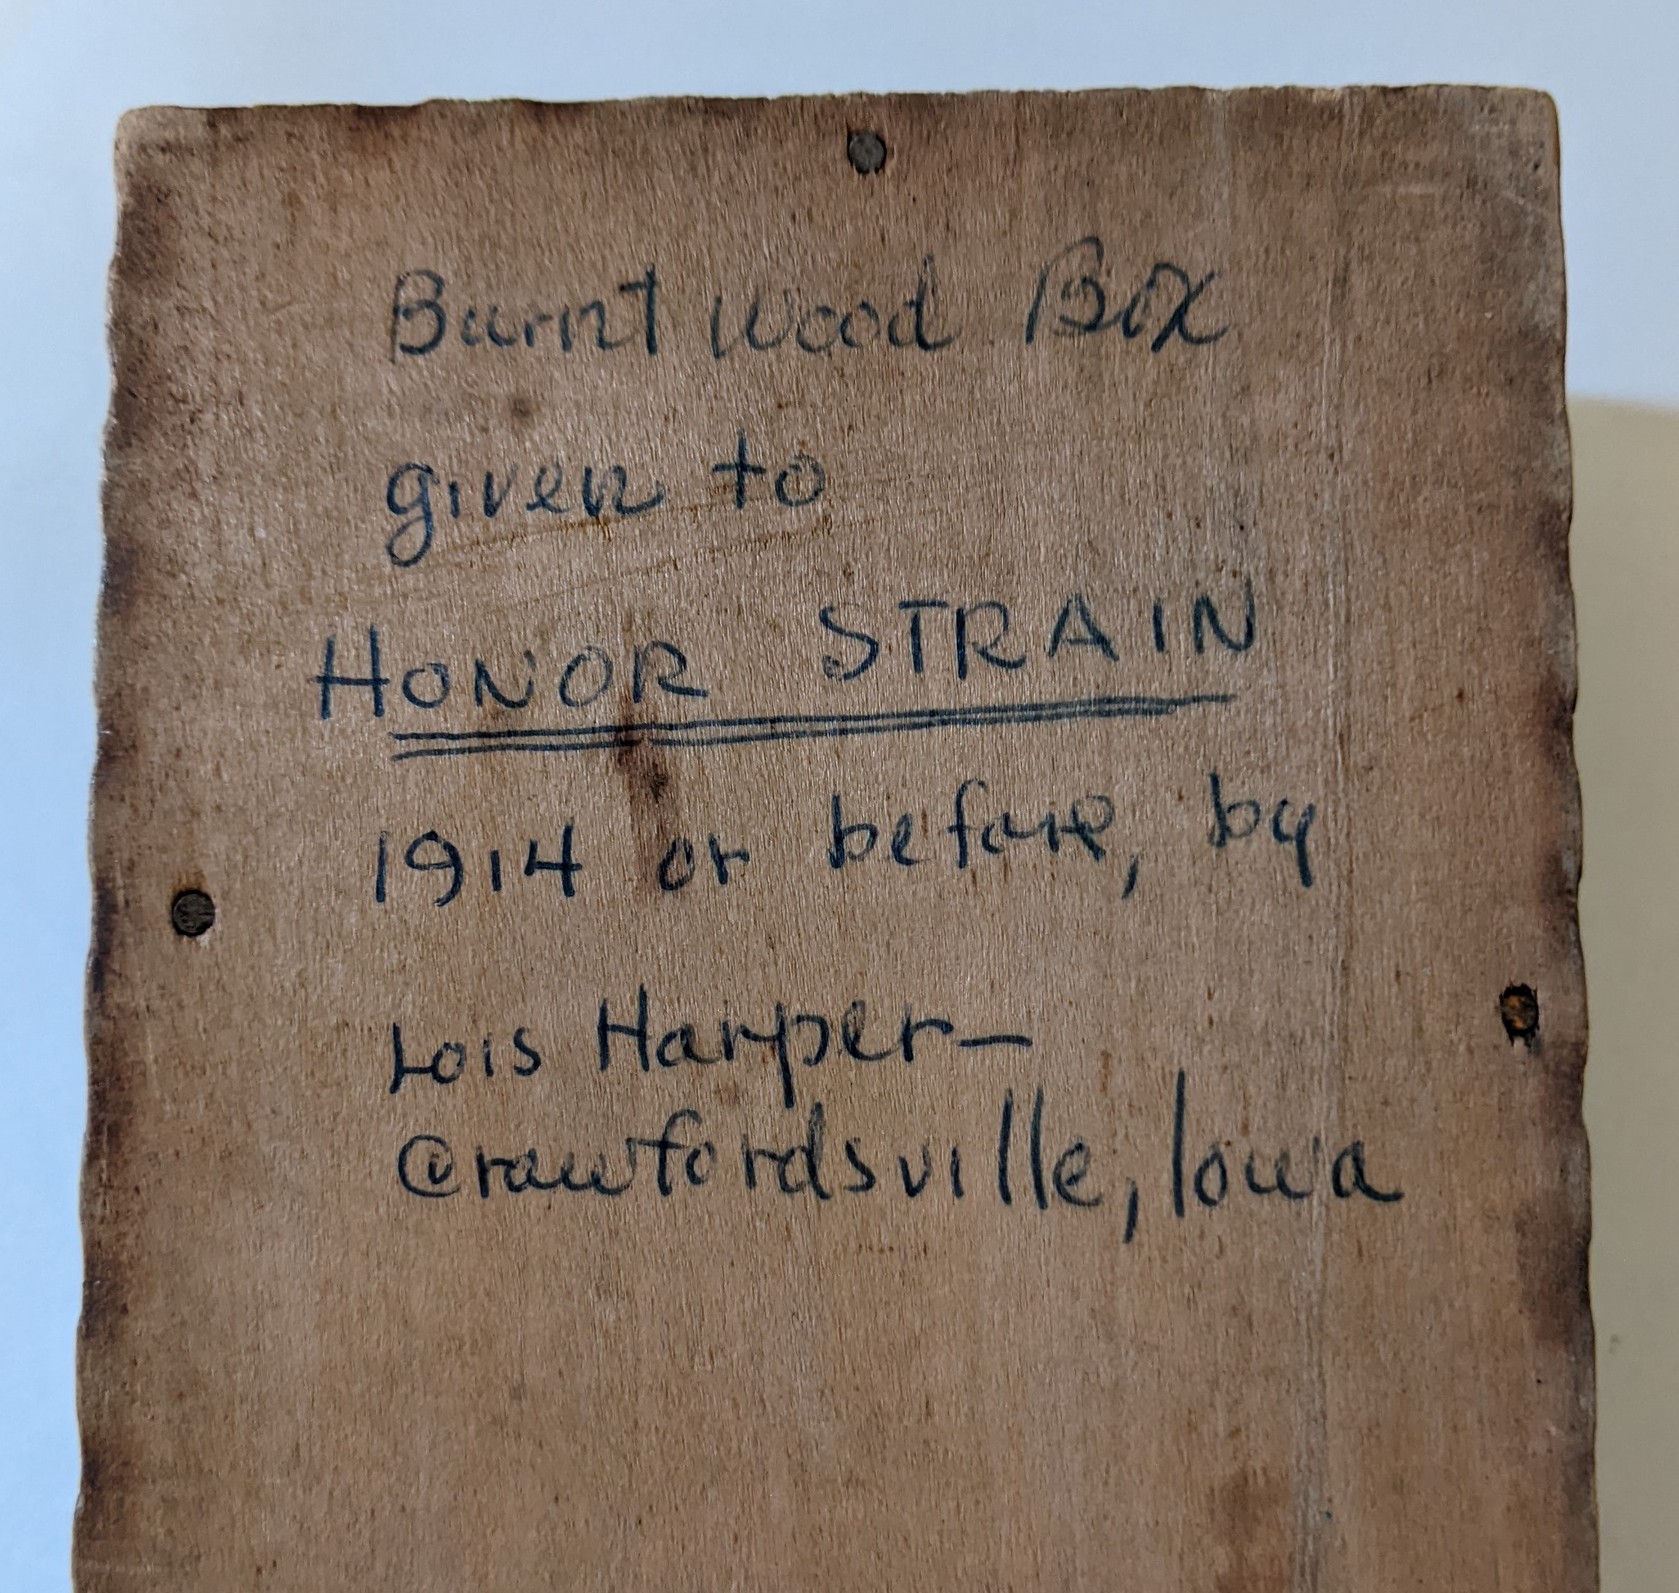 Burnt Wood Box
given to
HONOR STRAIN
1914 or before, by
Lois Harper—
Crawfordsville, Iowa